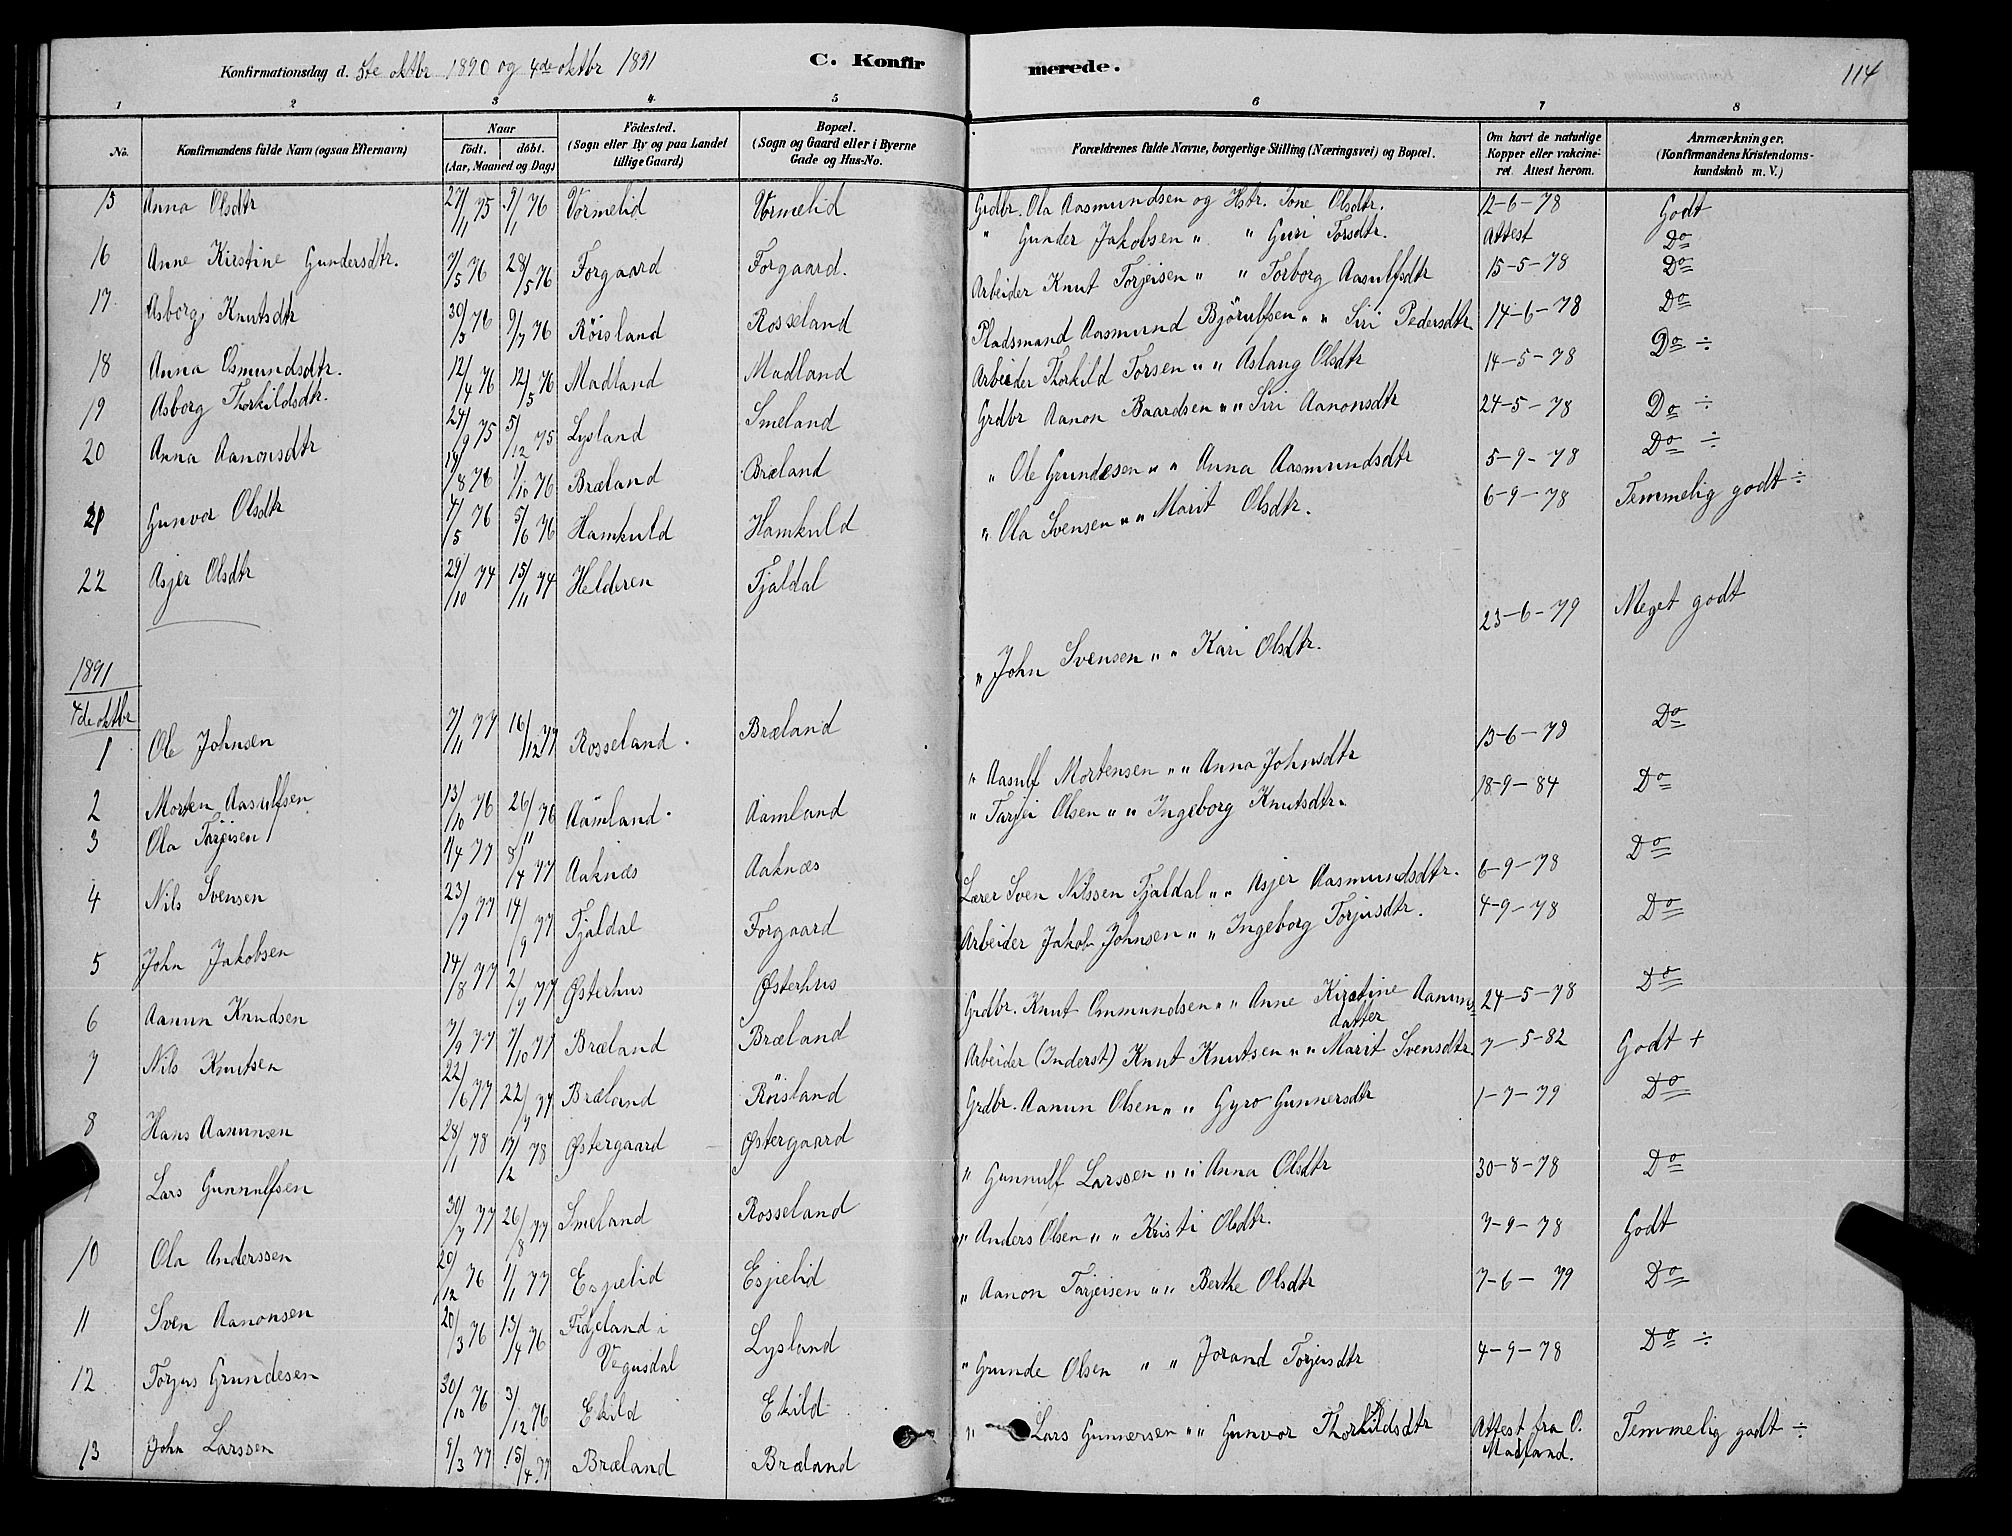 Konfirmationsdag d. 5te oktbr 1890 og 4de oktbr 1891 C. Konfirmerede. 114
1 2 3 4 5 6 7 8
No. Konfirmandens fulde Navn (ogsaa Efternavn) Naar født. døbt. (Aar, Maaned og Dag) Födested. (Sogn eller By og paa Landet tillige Gaard) Bopæl. (Sogn og Gaard eller i Byerne Gade og Hus-No. Forældrenes fulde Navne, borgerlige Stilling (Næringsvei) og Bopæl. Om havt de naturlige Kopper eller vakcineret. Attest herom. Anmærkninger. (Konfirmandens Kristendomskundskab m. V.)
15 Anna Olsdtr 27/11 75 9/1 76 Vormelid Vormelid Grdbr. Ola Aasmundsen og Hstr. Tone Olsdtr. 12-6-78 Godt
16 Anne Kirstine Gundersdtr. 7/5 76 28/5 76 Forgaard Forgaard. " Gunder Jakobsen " " Guri Torsdtr. Attest Do
17 Asborg Knutsdtr 30/5 76 9/7 76 Röisland Rosseland Arbeider Knut Torjeisen " " Torborg Aasulfsdtr 15-5-78 Do
18 Anna Osmundsdtr. 12/4 76 12/5 76 Madland Madland Pladsmand Aasmund Björulfsen " " Siri Pedersdtr 14-6-78 Do
19 Asborg Thorkildsdtr. 24/9 75 5/12 75 Lysland Smeland Arbeider Thorkild Torsen " " Aslaug Olsdtr 14-5-78 Do ÷
20 Anna Aanonsdtr 14/8 76 1/10 76 Bræland Bræland Grdbr Aanon Baardsen " " Siri Aanonsdtr 24-5-78 Do ÷
21 Gunvor Olsdtr 7/5 76 5/6 76 Hamkuld Hamkuld " Ole Grundesen " " Anna Aasmundsdtr 5-9-78 Do ÷
22 Asjer Olsdtr 29/10 74 15/11 74 Helderen Fjaldal " Ola Svensen " " Marit Olsdtr. 6-9-78 Temmelig godt ÷
1891
4de oktbr
1 Ole Johnsen 7/11 77 16/12 77 Rosseland. Bræland " John Svensen " " Kari Olsdtr. 23-6-79 Meget godt
2 Morten Aasulfsen 13/10 76 26/11 76 Aamland. Aamland " Aasulf Mortensen " " Anna Johnsdtr 13-6-78 Do
3 Ola Tarjeisen 1/4 77 8/4 77 Aaknæs Aaknæs " Tarjei Olsen " " Ingeborg Knutsdtr. 18-9-84 Do
4 Nils Svensen 23/7 77 14/9 77 Fjaldal Forgaard Lærer Sven Nilssen Fjaldal " " Asjer Aasmundsdtr. 6-9-78 Do
5 John Jakobsen 14/8 77 2/9 77 Østerhus Østerhus Arbeider Jakob Johnsen " " Ingeborg Torjusdtr. 4-9-78 Do
6 Aanun Knudsen 7/9 77 7/10 77 Bræland Bræland Grdbr. Knut Ommundsen " " Anne Kirstine Aanuns datter 24-5-78 Do
7 Nils Knutsen 22/6 77 22/7 77 Bræland Röisland Arbeider (Inderst) Knut Knutsen " " Marit Svensdtr 7-5-82 Godt +
8 Hans Aanunsen 28/1 78 17/2 78 Østergaard Østergaard Grdbr. Aanun Olsen " " Gyro Gunnersdtr 1-7-79 Do
Lars Gunnulfsen 30/7 77 26/8 77 Smeland Rosseland " Gunnulf Larssen " " Anna Olsdtr 30-8-78 Do
10 Ola Anderssen 29/12 76 1/1 77 Espelid Espelid " Anders Olsen " " Kristi Olsdtr. 3-9-78 Godt
11 Sven Aanonsen 20/3 76 13/4 76 Fidjeland i Vegusdal Lysland " Aanon Tarjeisen " " Berthe Olsdtr 7-6-79 Do
12 Torjus Grundesen 30/10 76 3/12 76 Ekild Ekild " Grunde Olsen " " Jorand Torjusdtr 4-9-78 Do ÷
13 John Larssen 9/3 77 15/4 77 Bræland Bræland " Lars Gunnersen " " Gunvor Thorkildsdtr Attest fra O. Madland. Temmelig godt ÷